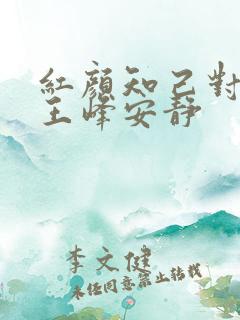 紅顏知己對
王峰安靜
李文健
未经同意禁止转载